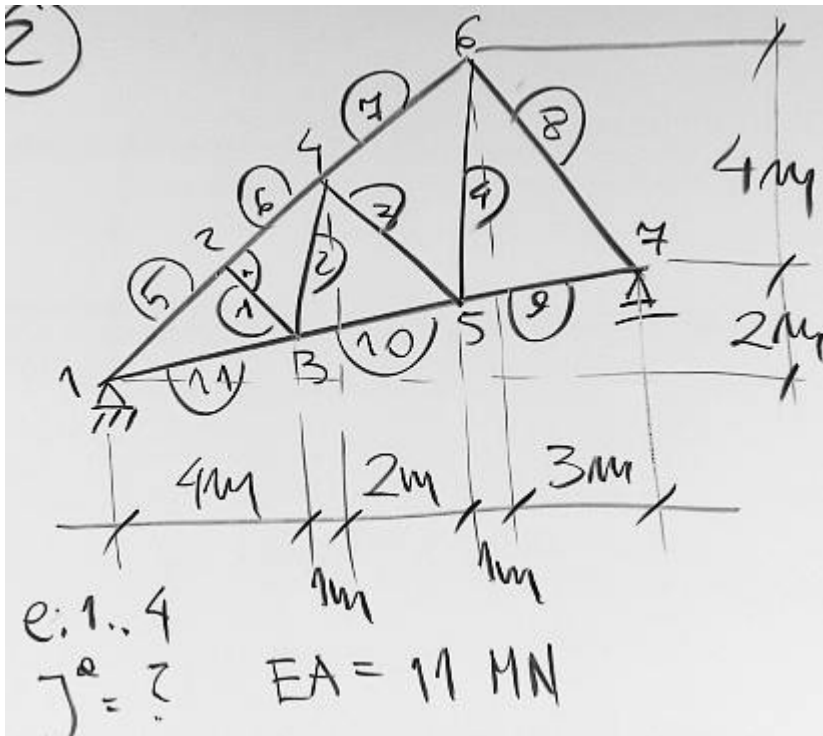 2
6
7
8
4
4m
4
6
3
2
5
2
1
7
1
10
5
9
2m
11
3
4m
2m
3m
1m
1m
e: 1..4
J^e = ?
EA = 11 MN